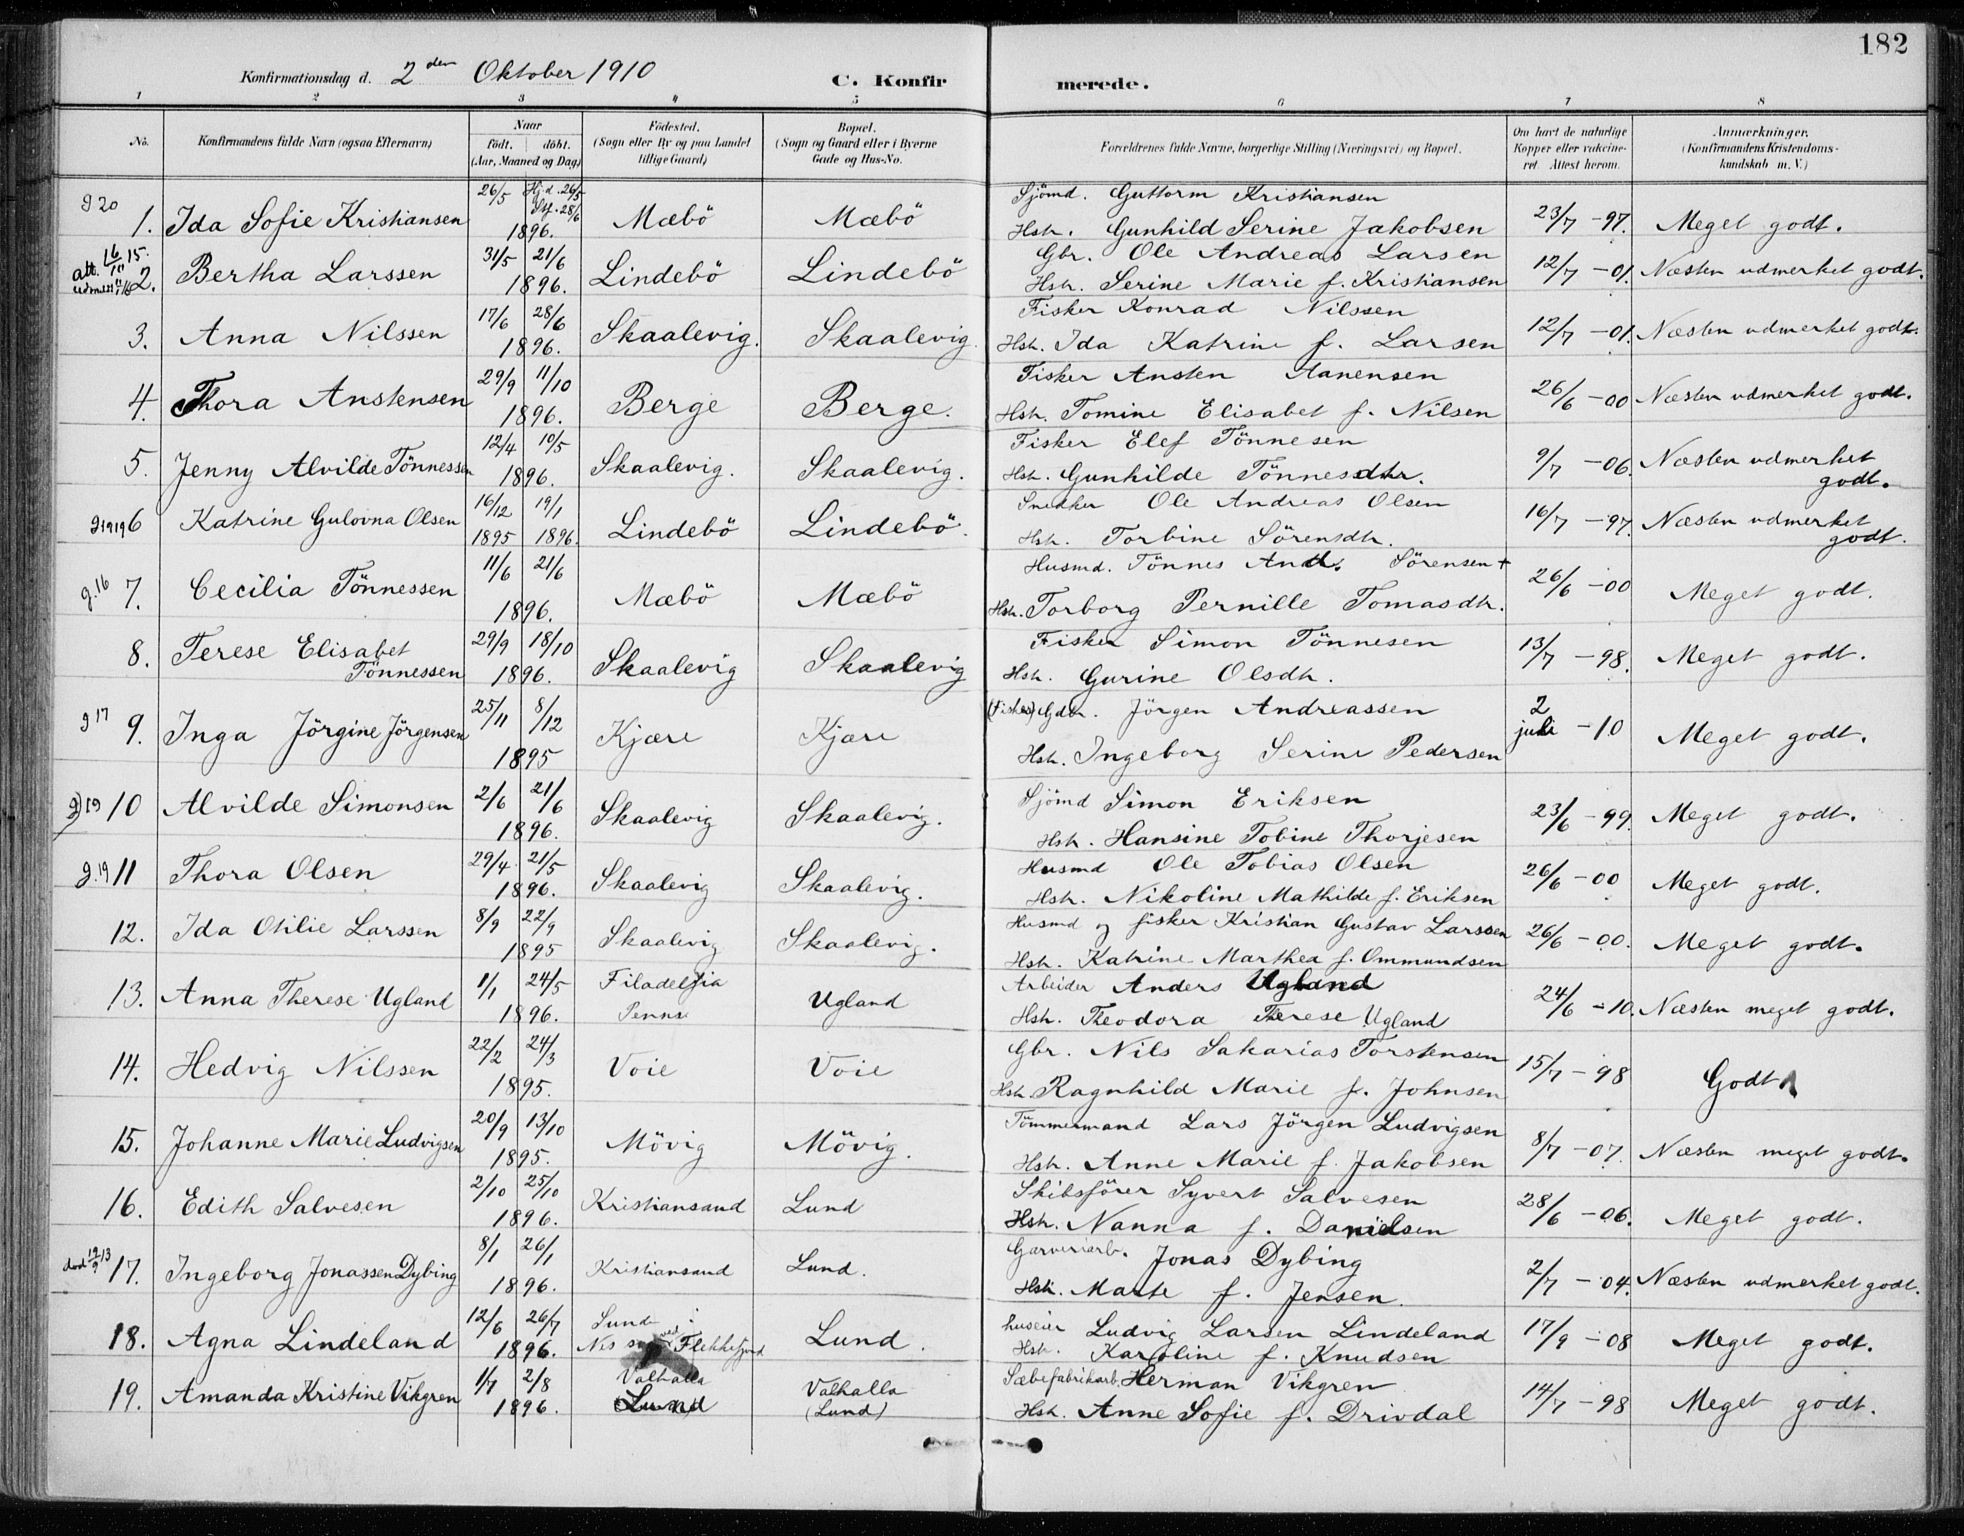 182
Konfirmationsdag d. 2den Oktober 1910
C. Konfirmerede.
1 2 3 4 5 6 7 8
No. Konfirmandens fulde Navn (ogsaa Efternavn) Naar födt. döbt. (Aar, Maaned og Dag) Födested. (Sogn eller By og paa Landet tillige Gaard) Bopæl. (Sogn og Gaard eller i Byerne Gade og Hus-No. Forældrenes fulde Navne, borgerlige Stilling (Næringsvei) og Bopæl. Om havt de naturlige Kopper eller vakcineret. Attest herom. Anmærkninger. (Konfirmandens Kristendomskundskab m. V.)
g 20 26/5 Hj.d. 26/5 Stf. 28/6 Sjömd. Guttorm Kristiansen
1. Ida Sofie Kristiansen 1896. Mæbö Mæbö Hstr. Gunhild Serine Jakobsen 23/7 - 97. Meget godt.
att. 16/III 15. 31/5 21/6 Gbr. Ole Andreas Larsen
2. Bertha Larssen 1896. Lindebö Lindebö Hstr. Serine Marie f. Kristiansen 12/7 - 01. Næsten udmerket godt.
17/6 28/6 Fisker Konrad Nilssen
3. Anna Nilssen 1896. Skaalevig. Skaalevig. Hstr. Ida Katrine f. Larsen 12/7 - 01. Næsten udmerket godt.
29/9 11/10 Fisker Ansten Aanensen
4. Thora Anstensen 1896. Berge Berge. Hstr. Tomine Elisabet f. Nilsen 26/6 - 00 Næsten udmerket godt.
12/4 10/5 Fisker Elef Tönnesen
5. Jenny Alvilde Tönnessen 1896. Skaalevig. Skaalevig. Hstr. Gunhilde Tönnesdtr. 9/7 - 06. Næsten udmerket godt.
16/12 19/1 Snedker Ole Andreas Olsen
g 1919 6 Katrine Gulovna Olsen 1895 1896. Lindebö Lindebö. Hstr. Torbine Sörensdtr. 16/7 - 97. Næsten udmerket godt.
11/6 21/6 Husmd. Tönnes Andr. Sörensen +
g. 16 7. Cecilia Tönnessen 1896. Mæbö Mæbö Hstr. Torborg Pernille Tomasdtr. 26/6 - 00 Meget godt.
8. Terese Elisabet 29/9 18/10 Fisker Simon Tönnesen
Tönnessen 1896. Skaalevig Skaalevig Hstr. Gurine Olsdtr. 13/7 - 98. Meget godt.
25/11 8/12 (Fisker) Gdbr. Jörgen Andreassen
g 17 9. Inga Jörgine Jörgensen 1895 Kjære Kjære Hstr. Ingeborg Serine Pedersen 2 juli - 10 Meget godt.
2/6 21/6 Sjömd Simon Eriksen
g) 19 10 Alvilde Simonsen 1896. Skaalevig Skaalevig. Hstr. Hansine Tobine Thorjesen 23/6 - 99. Meget godt.
29/4. 21/5 Husmd Ole Tobias Olsen
g. 19 11 Thora Olsen 1896. Skaalevig Skaalevig. Hstr. Nikoline Mathilde f. Eriksen 26/6 - 00 Meget godt.
8/9 22/9 Husmd og fisker Kristian Gustav Larssen
12. Ida Otilie Larssen 1895 Skaalevig Skaalevig. Hstr. Katrine Marthea f. Ommundsen 26/6 - 00. Meget godt.
1/1 24/5 Filadelfia Arbeider Anders Ugland
13. Anna Therese Ugland 1896. Penns. Ugland Hstr. Theodora Therese Ugland 24/6 - 10. Næsten meget godt.
22/2 24/3 Gbr. Nils Sakarias Torstensen
14. Hedvig Nilssen 1895. Voie Voie Hstr. Ragnhild Marie f. Johnsen 15/7 - 98 Godt
20/9 13/10 Tömmermand Lars Jörgen Ludvigsen
15. Johanne Marie Ludvigsen 1895. Mövig Mövig. Hstr. Anne Marie f. Jakobsen 8/7 - 07. Næsten meget godt.
2/10 25/10 Skibsförer Syvert Salvesen
16. Edith Salvesen 1896. Kristiansand Lund Hstr. Nanna f. Danielsen 28/6 - 06. Meget godt.
död 19/9 13 8/1 26/1 Garveriarb. Jonas Dybing
17. Ingeborg Jonassen Dybing 1896. Kristiansand Lund. Hstr. Marte f. Jensen. 2/7 - 04. Næsten udmerket godt.
12/6 26/7 Sund i huseier Ludvig Larsen Lindeland
18. Agna Lindeland 1896. Nes ved Flekkefjord Lund. Hstr. Karoline f. Knudsen 17/9 - 08 Meget godt.
1/7 2/8 Valhalla Valhalla Sæbefabrikarb. Herman Vikgren
19. Amanda Kristine Vikgren 1896. (Lund) (Lund) Hstr. Anne Sofie f. Drivdal 14/7 - 98 Meget godt.